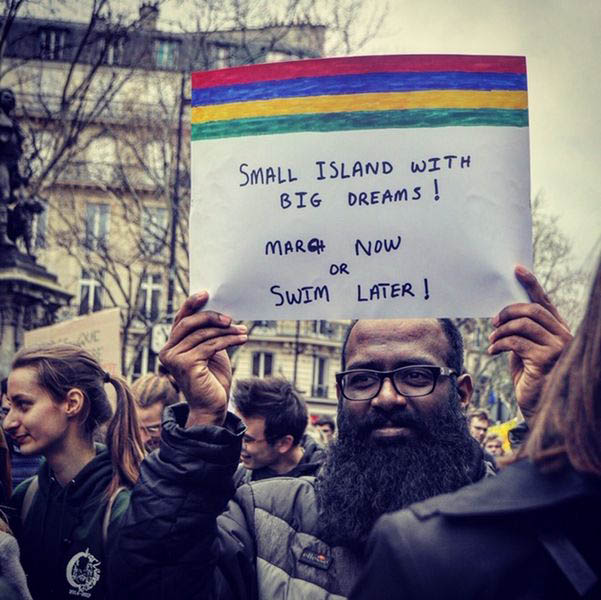 SMALL ISLAND WITH
BIG DREAMS!
MARCH NOW
OR
SWIM LATER!